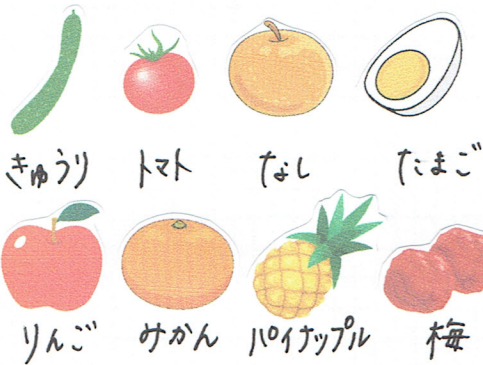 きゅうり トマト なし たまご
りんご みかん パイナップル 梅